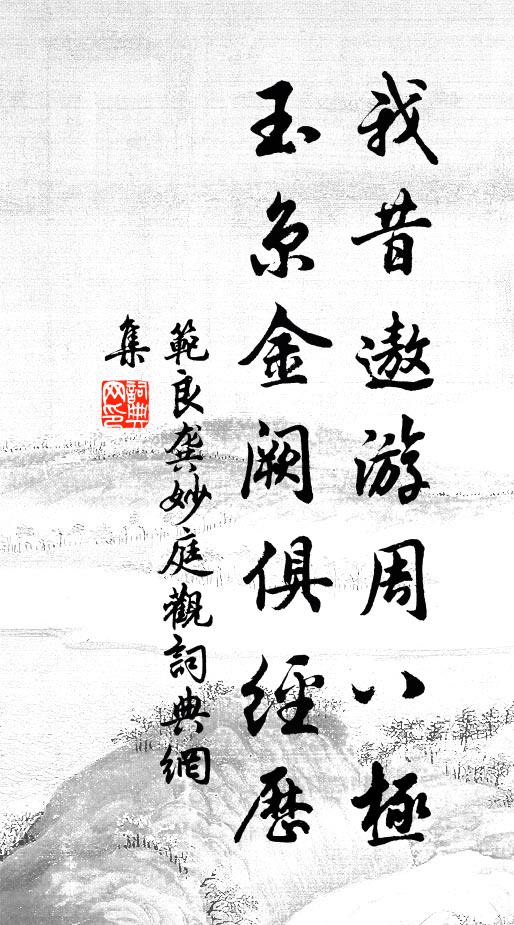 我昔遨游周八極
玉京金闕俱經歷
範良龔妙庭觀詞典網
集
詞典
网印